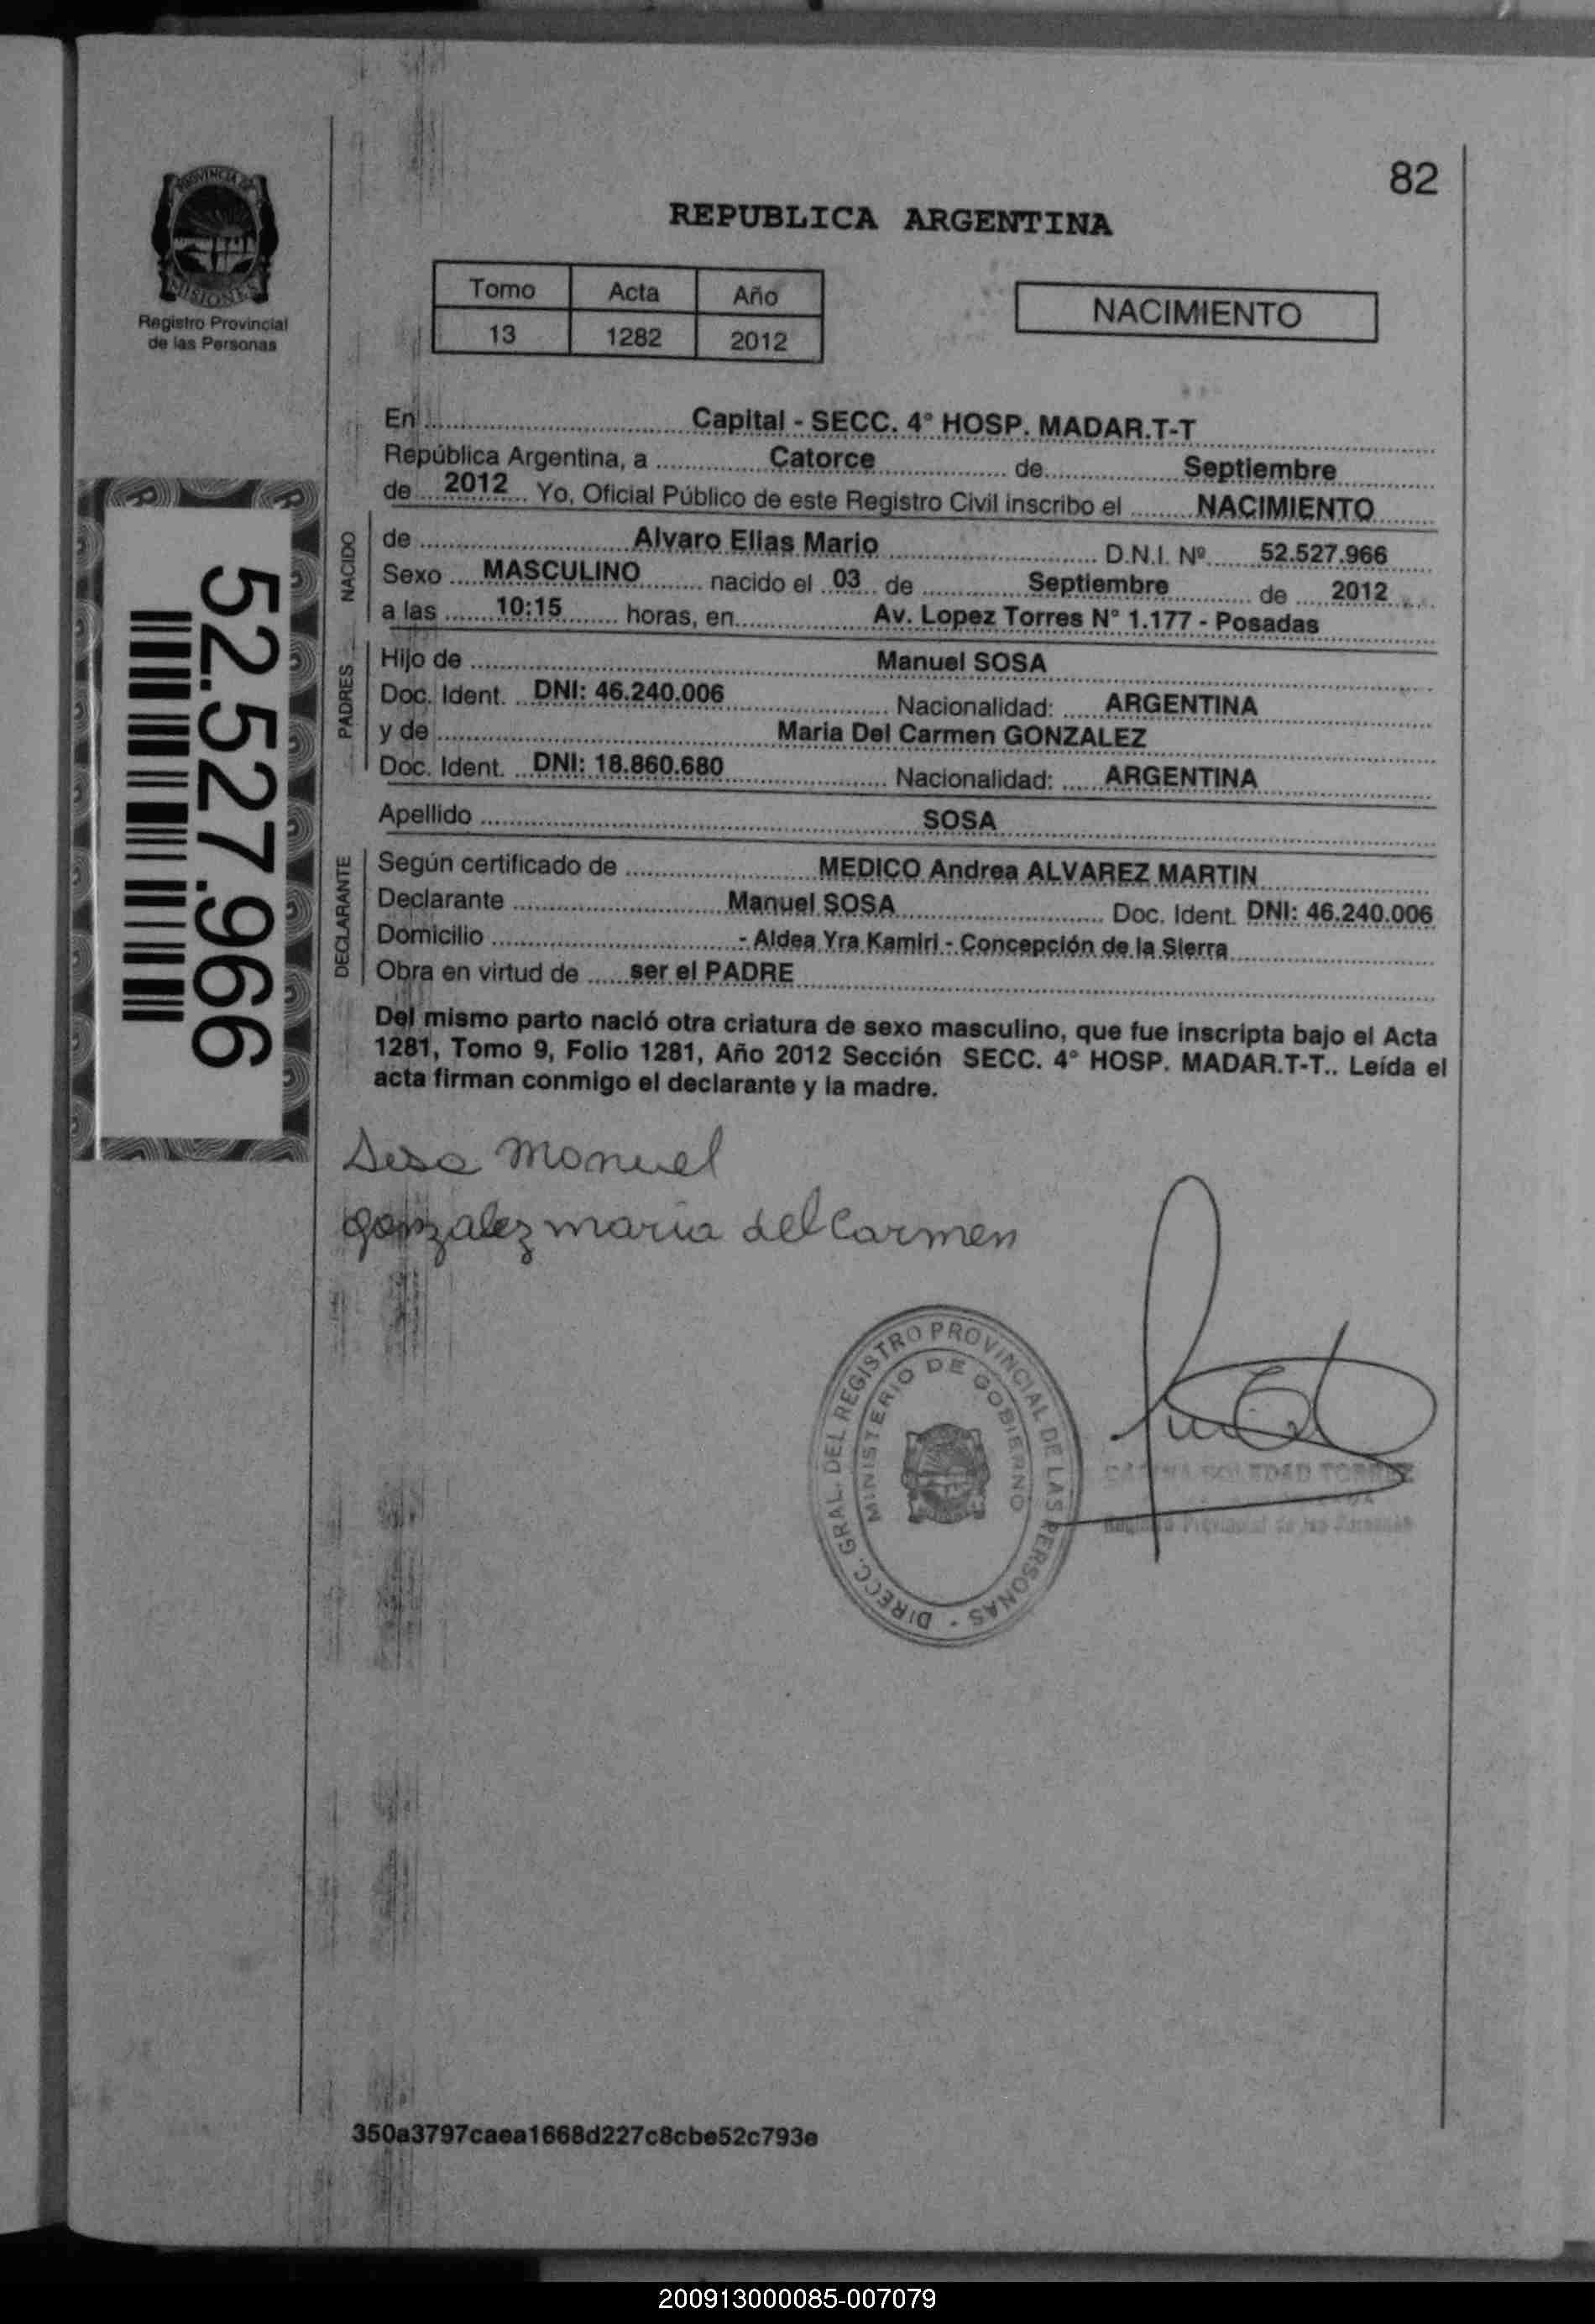 82
REPUBLICA ARGENTINA
PROVINCIA DE
MISIONES
Registro Provincial
de las Personas
Tomo Acta Año
13 1282 2012
NACIMIENTO
En Capital - SECC. 4° HOSP. MADAR.T-T
República Argentina, a Catorce de Septiembre
de 2012 Yo, Oficial Público de este Registro Civil inscribo el NACIMIENTO
NACIDO
de Alvaro Elias Mario D.N.I. Nº 52.527.966
Sexo MASCULINO nacido el 03 de Septiembre de 2012
a las 10:15 horas, en Av. Lopez Torres N° 1.177 - Posadas
PADRES
Hijo de Manuel SOSA
Doc. Ident. DNI: 46.240.006 Nacionalidad: ARGENTINA
y de Maria Del Carmen GONZALEZ
Doc. Ident. DNI: 18.860.680 Nacionalidad: ARGENTINA
Apellido SOSA
DECLARANTE
Según certificado de MEDICO Andrea ALVAREZ MARTIN
Declarante Manuel SOSA Doc. Ident. DNI: 46.240.006
Domicilio - Aldea Yra Kamiri - Concepción de la Sierra
Obra en virtud de ser el PADRE
Del mismo parto nació otra criatura de sexo masculino, que fue inscripta bajo el Acta
1281, Tomo 9, Folio 1281, Año 2012 Sección SECC. 4° HOSP. MADAR.T-T.. Leída el
acta firman conmigo el declarante y la madre.
52.527.966
Sosa Manuel
gonzalez maria del Carmen
DIRECC. GRAL. DEL REGISTRO PROVINCIAL DE LAS PERSONAS -
MINISTERIO DE GOBIERNO
SOLEDAD
Registro Provincial de las Personas
350a3797caea1668d227c8cbe52c793e
200913000085-007079